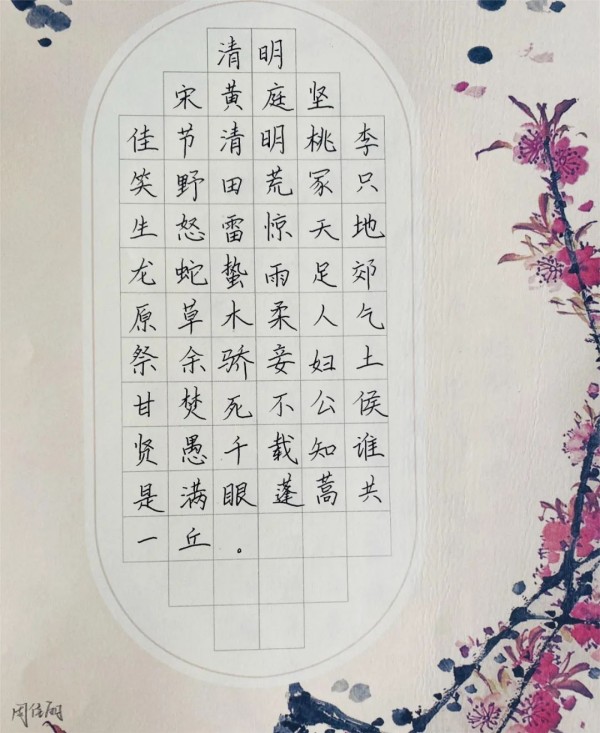 清明
宋黄庭坚
佳节清明桃李
笑野田荒冢只
生怒雷惊天地
龙蛇蛰雨足郊
原草木柔人乞
祭余骄妾妇土
甘焚死不公侯
贤愚千载知谁
是满眼蓬蒿共
一丘。